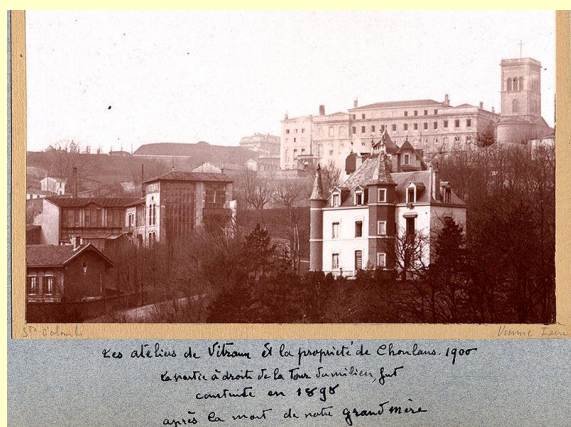 Ste Colombe
Vienne Isère
Les atéliers de Vitraux et la propriété de Choulans. 1900
La partie à droite de la Tour du milieu, fut
construite en 1898
après la mort de notre grand mère